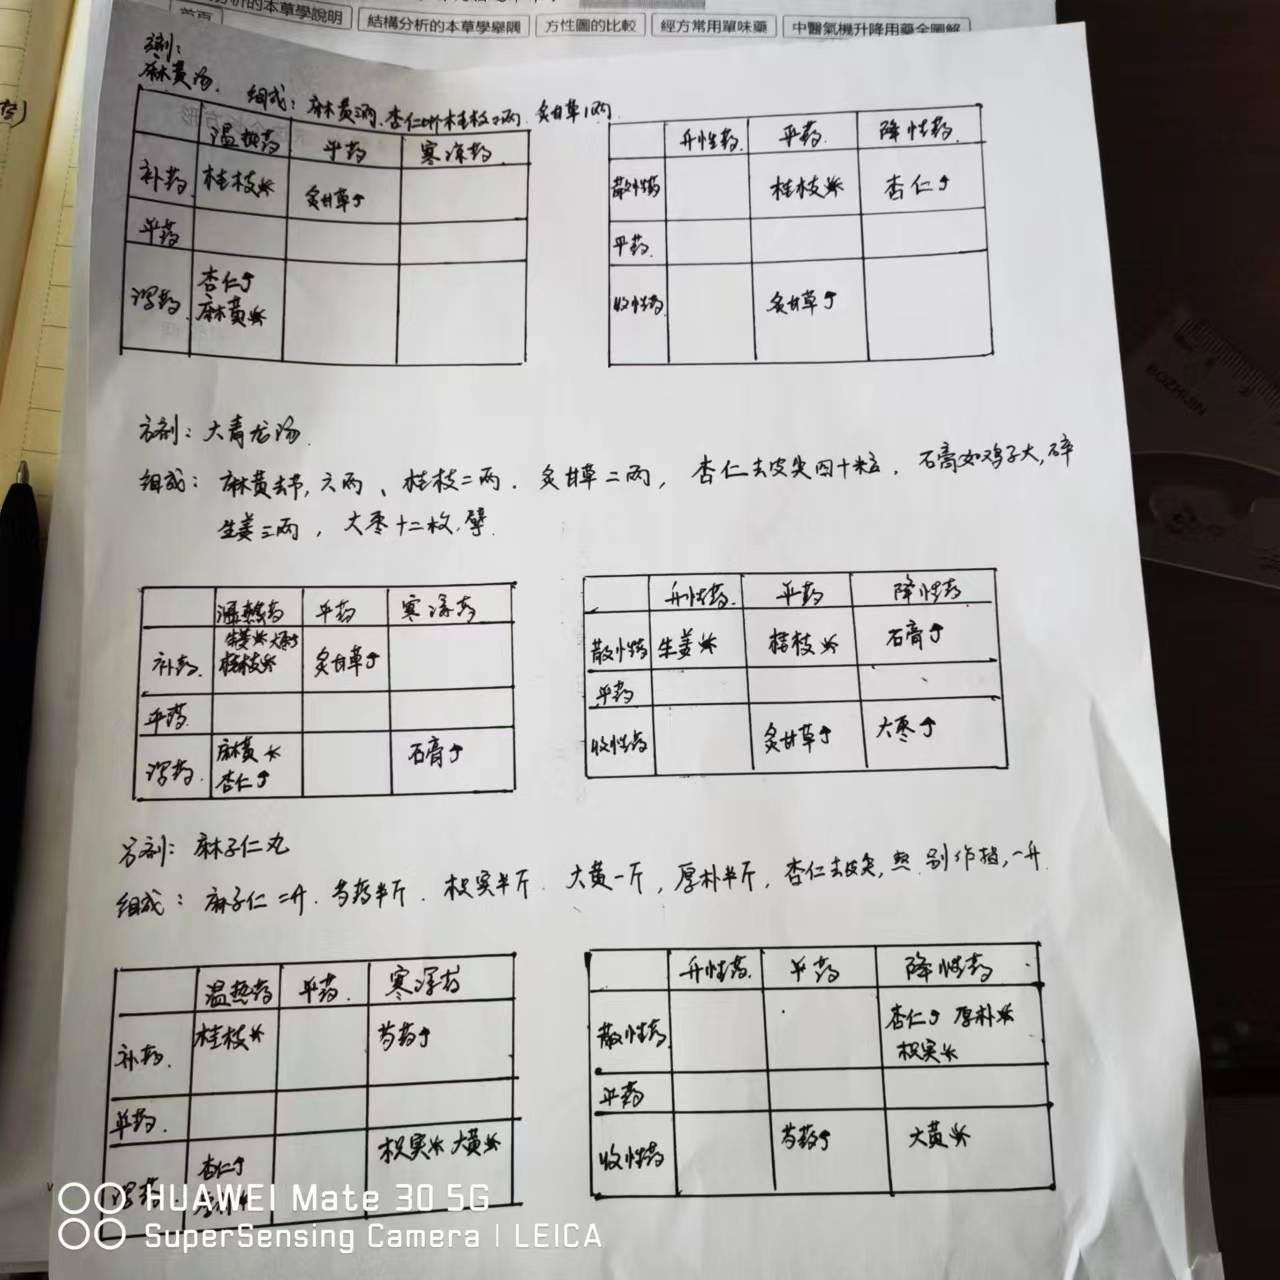 分析的本草學說明
首頁
結構分析的本草學舉隅
方性圖的比較
經方常用單味藥
中醫氣機升降用藥全圖解
方剂：
麻黄汤. 组成：麻黄3两.杏仁 桂枝2两. 炙甘草1两
温热药 平药 寒凉药
补药 桂枝* 炙甘草↑
平药
泻药 杏仁↑
麻黄*
升性药. 平药. 降性药
散性药 桂枝* 杏仁↑
平药.
收性药 炙甘草↑
方剂：大青龙汤.
组成：麻黄去节,六两、桂枝二两. 炙甘草二两, 杏仁去皮尖四十粒. 石膏如鸡子大,碎
生姜三两, 大枣十二枚,擘.
温热药 平药 寒凉药
生姜* 大枣↑
补药. 桂枝* 炙甘草↑
平药
泻药. 麻黄* 石膏↑
杏仁↑
升性药. 平药 降性药
散性药 生姜* 桂枝* 石膏↑
平药
收性药 炙甘草↑ 大枣↑
方剂：麻子仁丸
组成：麻子仁二升. 芍药半斤. 枳实半斤. 大黄一斤, 厚朴半斤, 杏仁去皮尖,熬.别作脂,一升.
温热药 平药. 寒凉药
补药. 桂枝* 芍药↑
平药.
枳实* 大黄*
泻药. 杏仁↑
升性药. 平药 降性药
散性药. 杏仁↑ 厚朴*
枳实*
平药
收性药 芍药↑ 大黄*
BOZHIJIN
HUAWEI Mate 30 5G
SuperSensing Camera | LEICA